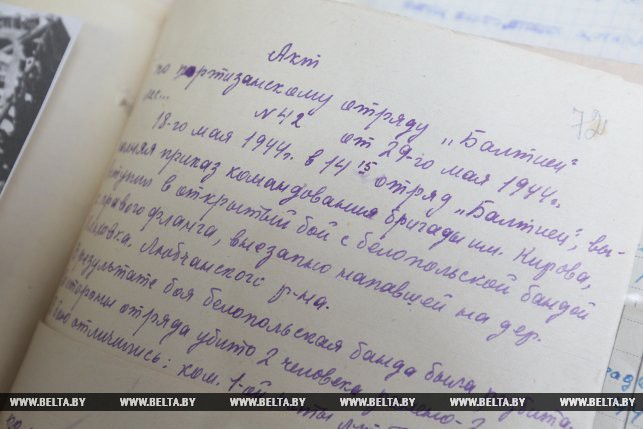 Акт
по партизанскому отряду „Балтиец"
№ 42 от 29-го мая 1944г.
18-го мая 1944г. в 14 15 отряд „Балтиец", вы-
приказ командования бригады им. Кирова,
в открытый бой с белопольской бандой
правого фланга, внезапно напавшей на дер.
Любчанского р-на.
результате боя белопольская банда была
стороны отряда убито 2 человека
отличились: ком. 1-ой
72
WWW.BELTA.BY WWW.BELTA.BY WWW.BELTA.BY WWW.BELTA.BY